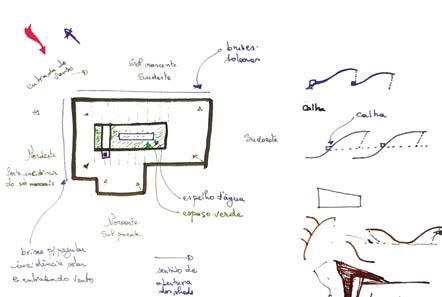 entrada de vento
Sol nascente
Sudeste
brises-
soleares
Nordeste
forte incidência
do sol nascente
Sudoeste
Noroeste
Sol poente
espelho d'água
espaço verde
brises p/ regular
incidência solar
e entrada do vento
sentido de
abertura
dos sheds
Calha
calha